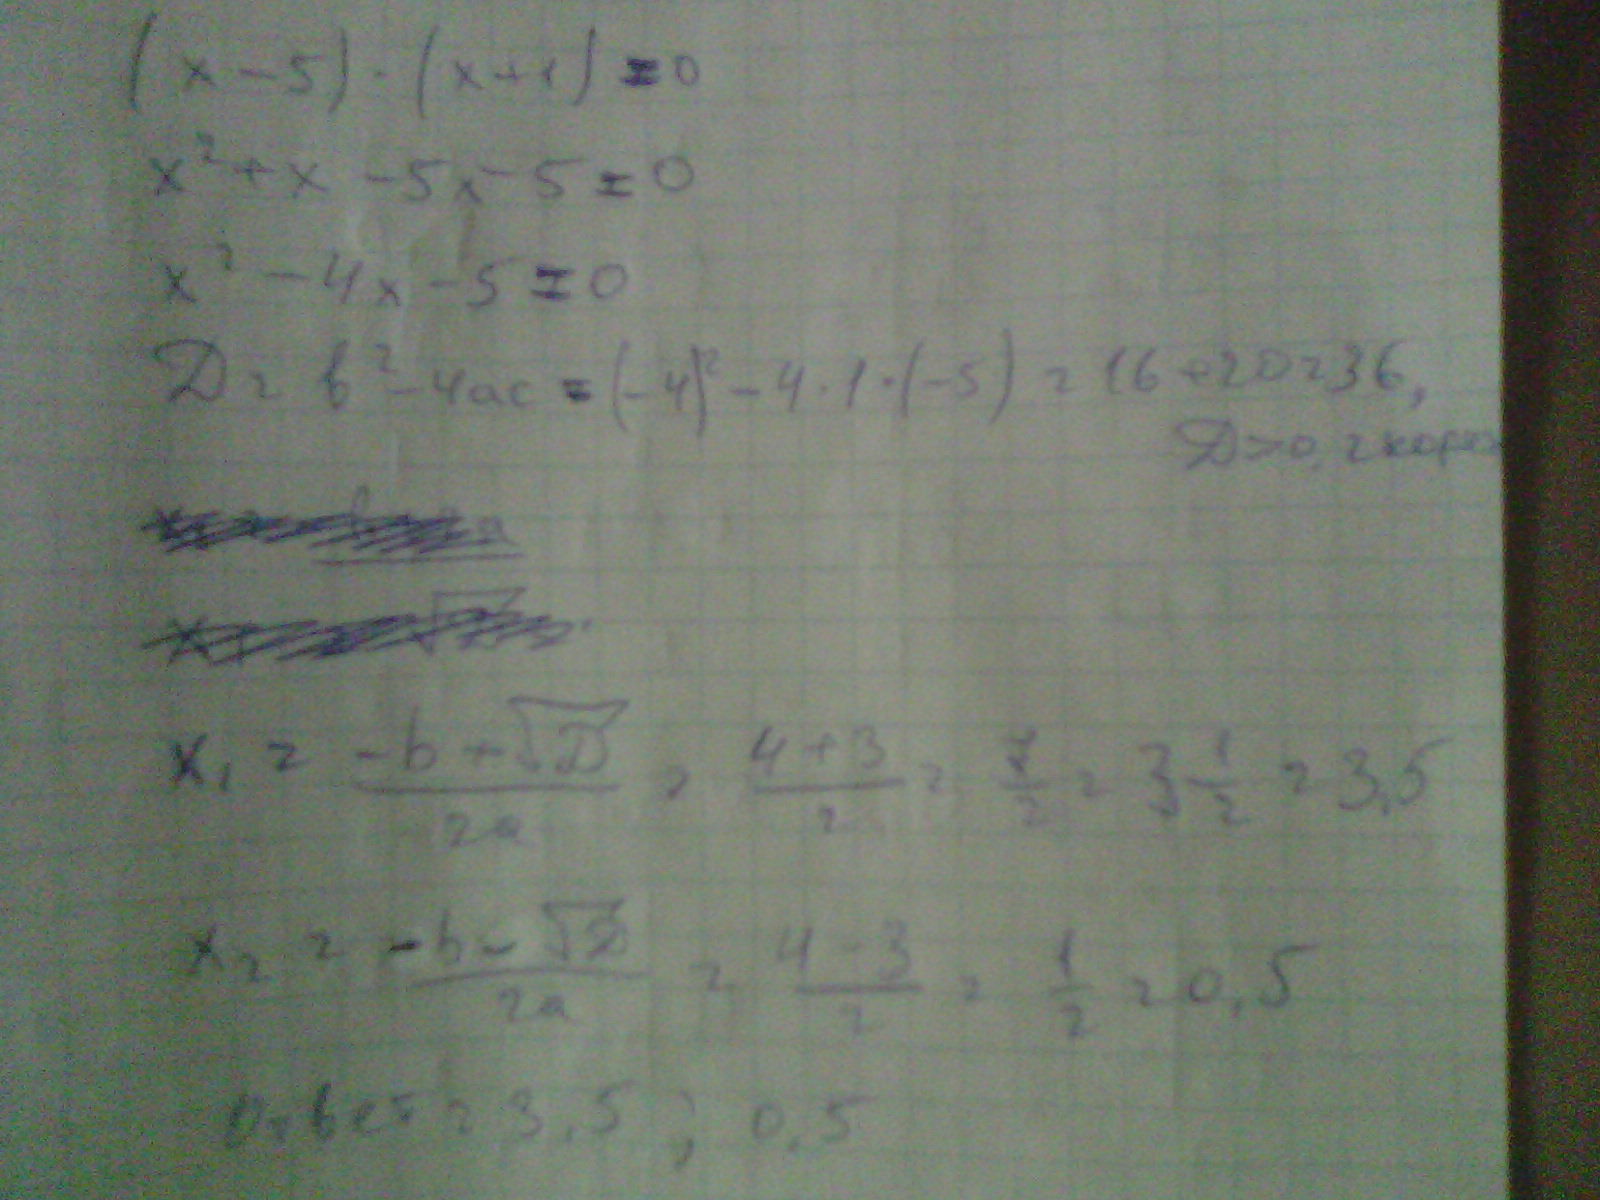 (x-5)·(x+1)=0
x²+x-5x-5=0
x²-4x-5=0
D=b²-4ac=(-4)²-4·1·(-5)=16+20=36,
D>0, 2 корн
x₁=(-b+√D)/2a=(4+3)/2=7/2=3 1/2=3,5
x₂=(-b-√D)/2a=(4-3)/2=1/2=0,5
Ответ=3,5; 0,5